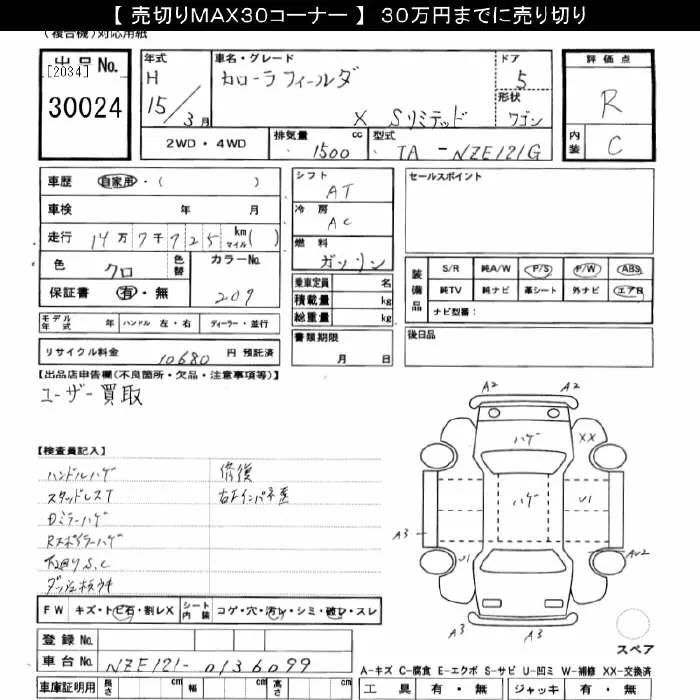 【 売切りMAX30コーナー 】 30万円までに売り切り
(複合機)対応用紙
出品No. [2034]
30024
年式 H 15/3月
車名・グレード カローラフィールダー X Sリミテッド
ドア 5
形状 ワゴン
評価点 R
内装 C
2WD・4WD
排気量 1500 cc
型式 TA-NZE121G
車歴 自家用・( )
車検 年 月
走行 14万7千725 km マイル ( )
色 クロ 色替
カラーNo. 209
保証書 有・無
モデル年式 年 ハンドル 左・右 ディーラー・並行
リサイクル料金 10680 円 預託済
シフト AT
冷房 AC
燃料 ガソリン
乗車定員 名
積載量 kg
総重量 kg
書類期限
月 日
セールスポイント
装備品
S/R 純A/W P/S P/W ABS
純TV 純ナビ 革シート 外ナビ エアB
ナビ型番:
後日品
【出品店申告欄(不良箇所・欠品・注意事項等)】
ユーザー買取
【検査員記入】
ハンドルハゲ
スタッドレスT
Dミラーハゲ
Rスポイラーハゲ
下廻りS,C
修復
A2 A2
ハゲ XX
ハゲ U1
A3
U1 AU2
A3 A3
スペア
FW キズ・トビ石・割レX シート内装 コゲ・穴・汚レ・シミ・破レ・スレ
登録No.
車台No. NZE121-0136099
車庫証明用 長さ cm 幅 cm 高さ cm
A-キズ C-腐食 E-エクボ S-サビ U-凹ミ W-補修 XX-交換済
工具 有・無 ジャッキ 有・無